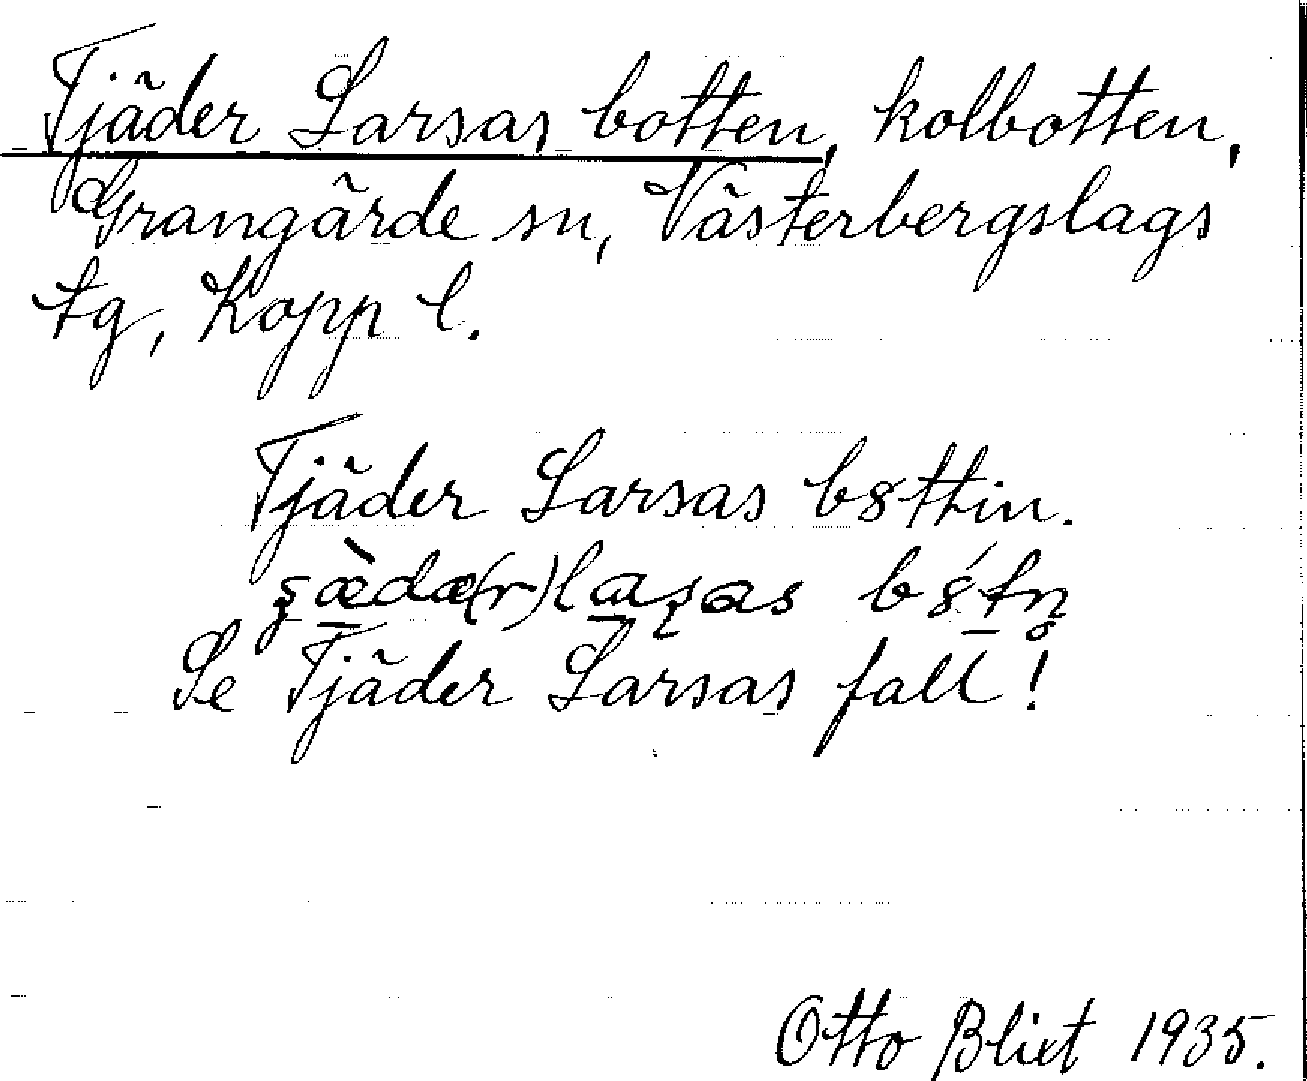 Tjäder Larsas botten, kolbotten,
Grangärde sn, Västerbergslags
tg, Kopp l.
Tjäder Larsas b8ttin.
Se Tjäder Larsas fall!
Otto Blixt 1935.